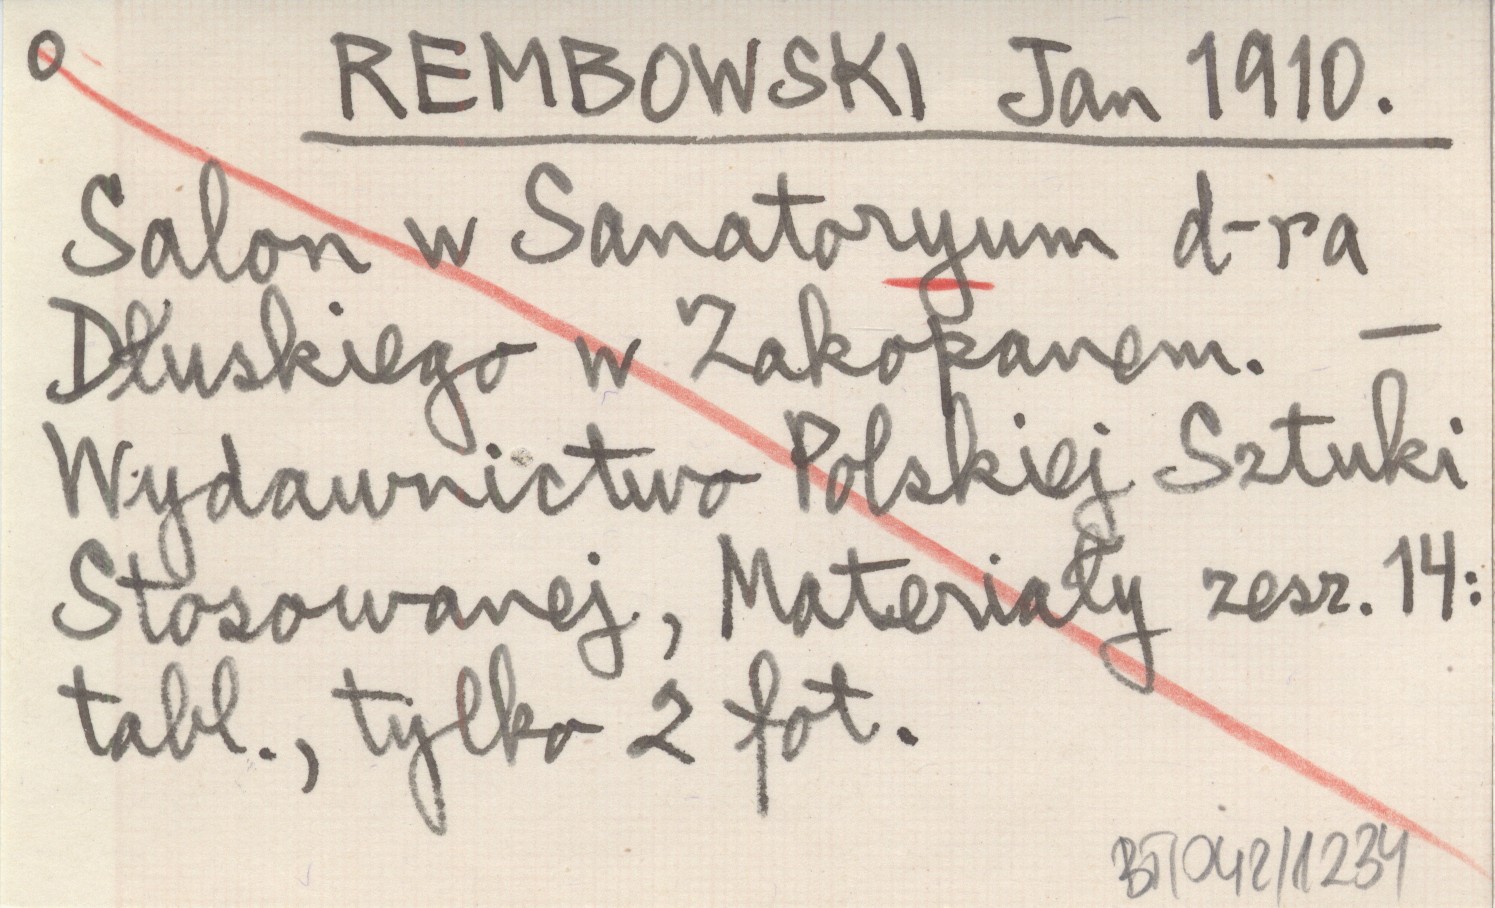 o REMBOWSKI Jan 1910.
Salon w Sanatoryum d-ra
Dłuskiego w Zakopanem. —
Wydawnictwo Polskiej Sztuki
Stosowanej, Materiały zesz. 14:
tabl., tylko 2 fot.
BT/042/1234